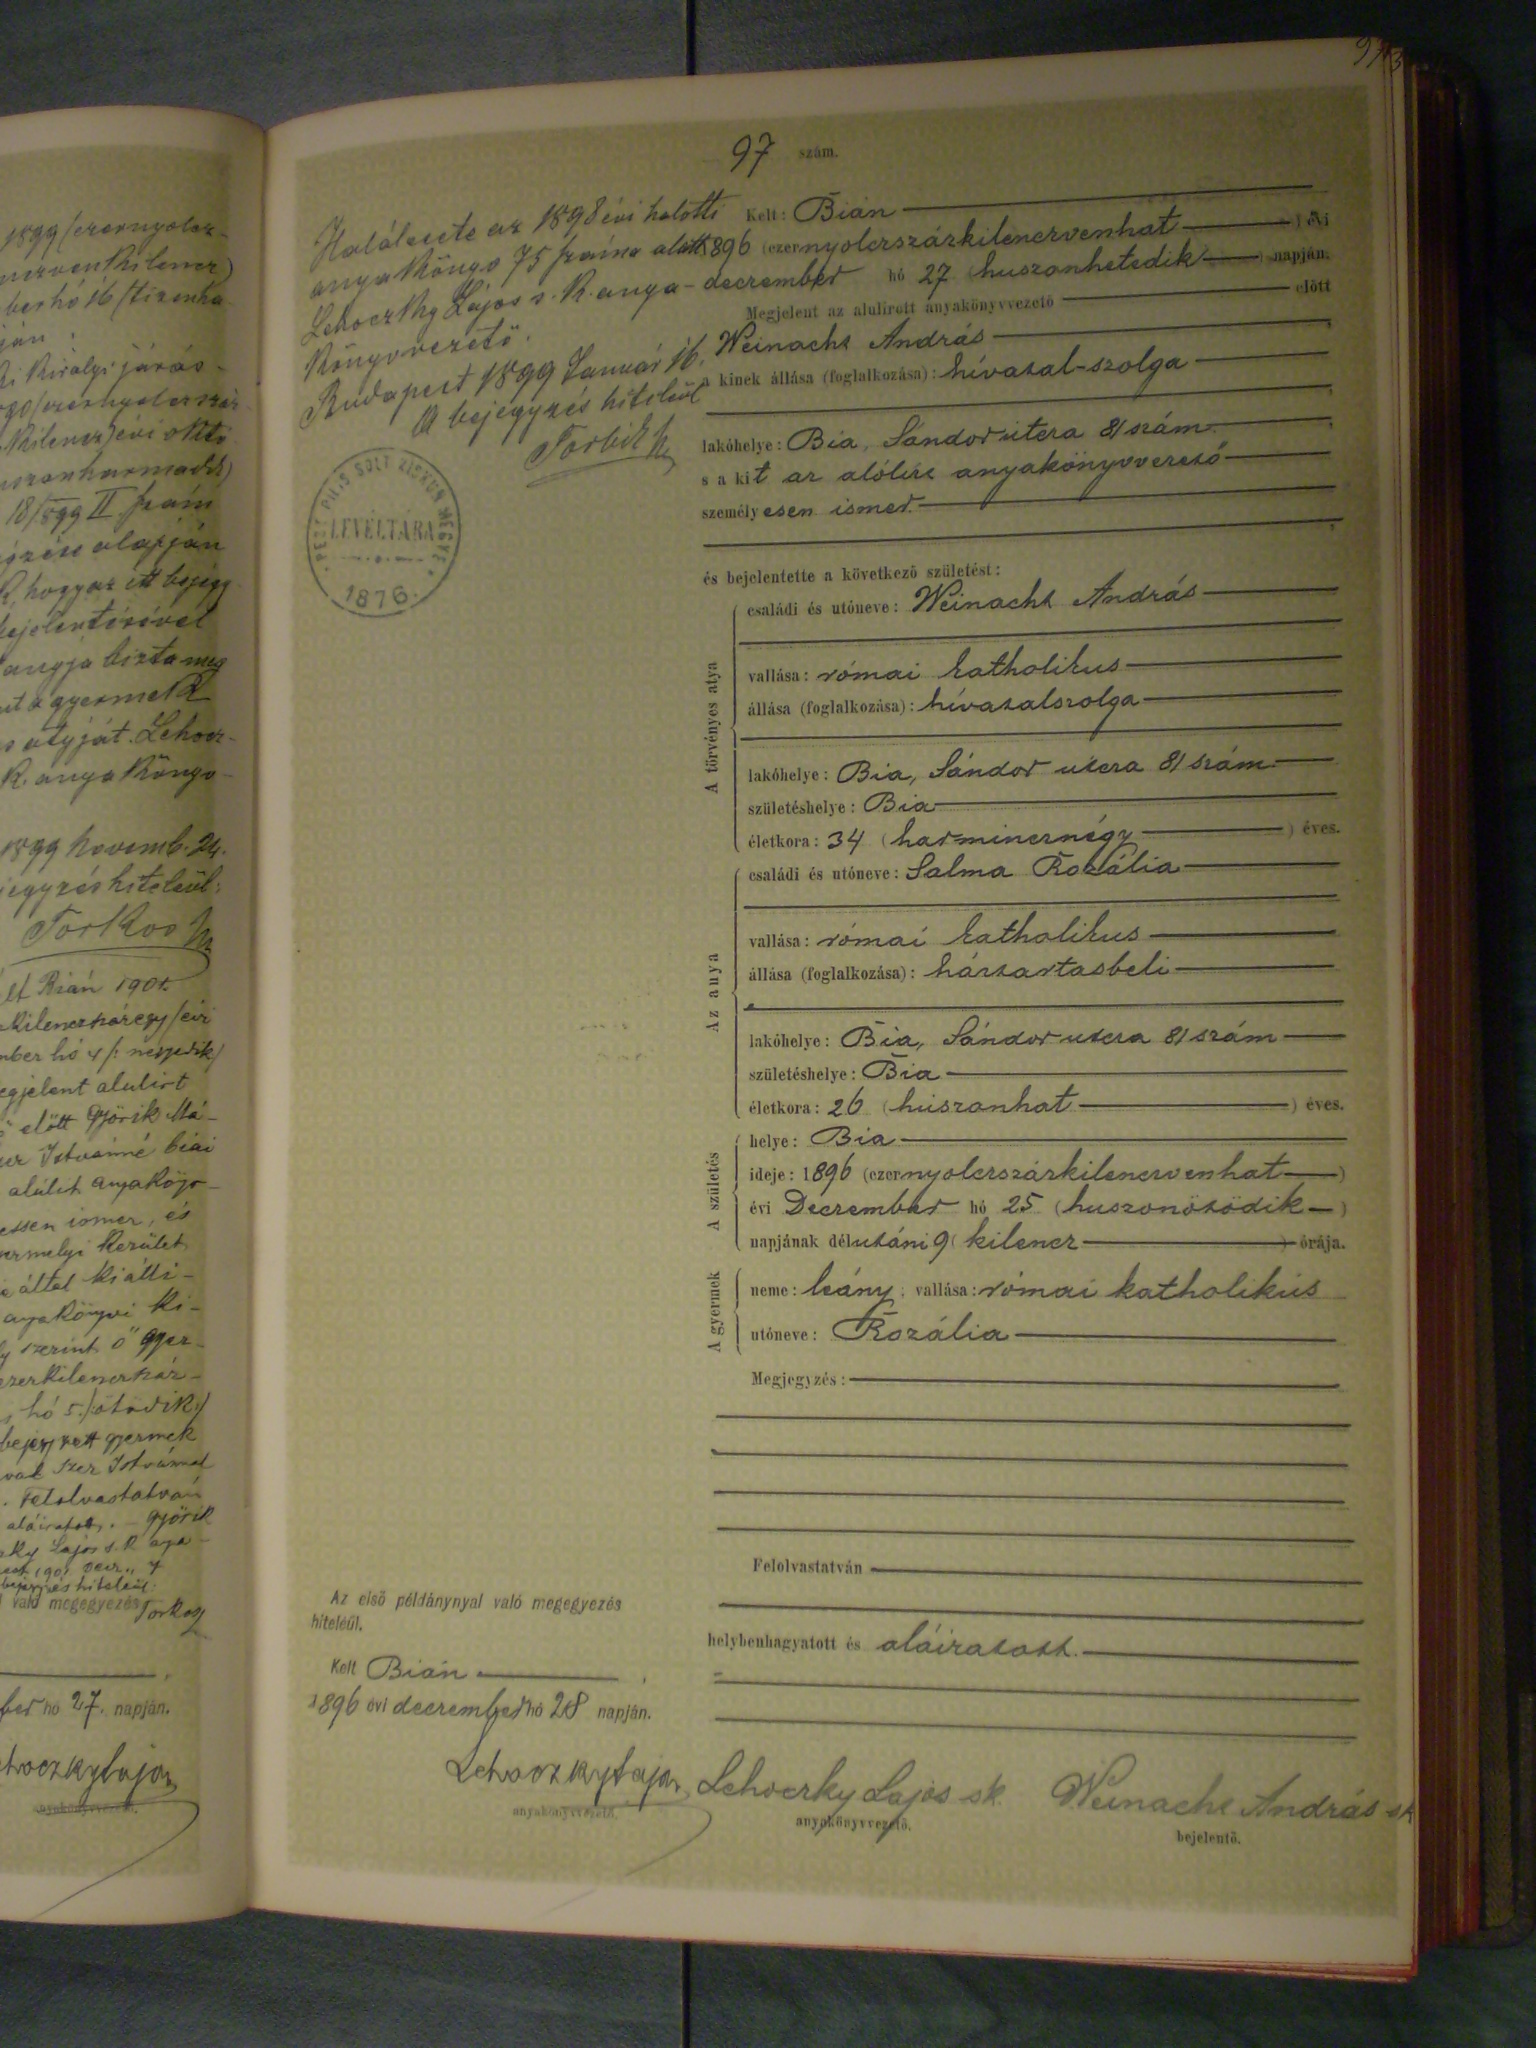 1899 (ezernyolcz-
nerven kilencz)
ber hó 16 (tizenha-
ján
ki királyi járás-
kilencz) évi októ
18/899 II szám
alapján
R, hogy az itt bejegy
bejelentésével
anyja bizta meg
a gyermek
atyját. Lehocz-
R. anyakönyv-
1899 Novemb. 24.
jegyzés hiteléül:
Torkos
Bián 1901.
kilenczszáregy/évi
mber hó 4 /: negyedik/
egjelent alulirt
előtt Györik Má-
Istvánné biai
alulirt anyakönyv-
essen ismer, és
kerület
által kiálli-
anyakönyvi ki-
szerint ő gyer-
ezerkilenczszáz-
hó 5./:ötödik:/
bejegyzett gyermek
Szer Istvánnal
. Felolvastatván
aláiratott. - Györik
Lajos s. k. anya-
bejegyzés hiteléül:
való megegyezés
Torkos
ber hó 27. napján.
Lehoczky Lajos
anyakönyvvezető.
973
97 szám.
Halálesete az 1898 évi halotti
anyakönyv 75 száma alatt
Lehoczky Lajos s. k. anya-
könyvvezető.
Budapest 1899 Január 16.
A bejegyzés hiteléül
PEST PILIS SOLT ZSKUN MEGYE
LEVÉLTÁRA
1876.
Kelt: Bián
1896 (ezernyolczszázkilenczvenhat) évi
deczember hó 27 (huszonhetedik) napján.
Megjelent az alulirott anyakönyvvezető előtt
Weinacht András
a kinek állása (foglalkozása): hivatal-szolga
lakóhelye: Bia, Sándor utcza 81 szám
s a kit az alólirt anyakönyvvezető
személyesen ismer.
és bejelentette a következő születést:
A törvényes atya
családi és utóneve: Weinacht András
vallása: római katholikus
állása (foglalkozása): hivatalszolga
lakóhelye: Bia, Sándor utcza 81 szám
születéshelye: Bia
életkora: 34 (harmincznégy) éves.
Az anya
családi és utóneve: Salma Rozália
vallása: római katholikus
állása (foglalkozása): háztartasbeli
lakóhelye: Bia, Sándor utcza 81 szám
születéshelye: Bia
életkora: 26 (huszonhat) éves.
A születés
helye: Bia
ideje: 1896 (ezernyolczszázkilenczvenhat)
évi Deczember hó 25 (huszonötödik)
napjának délutáni 9 (kilencz) órája.
A gyermek
neme: leány; vallása: római katholikus
utóneve: Rozália
Megjegyzés:
Felolvastatván
helybenhagyatott és aláiratott.
Az első példánynyal való megegyezés
hiteléül.
Kelt Bián
1896 évi deczember hó 28 napján.
Lehoczky Lajos
anyakönyvvezető.
Lehoczky Lajos sk.
anyakönyvvezető.
Weinacht András sk
bejelentő.